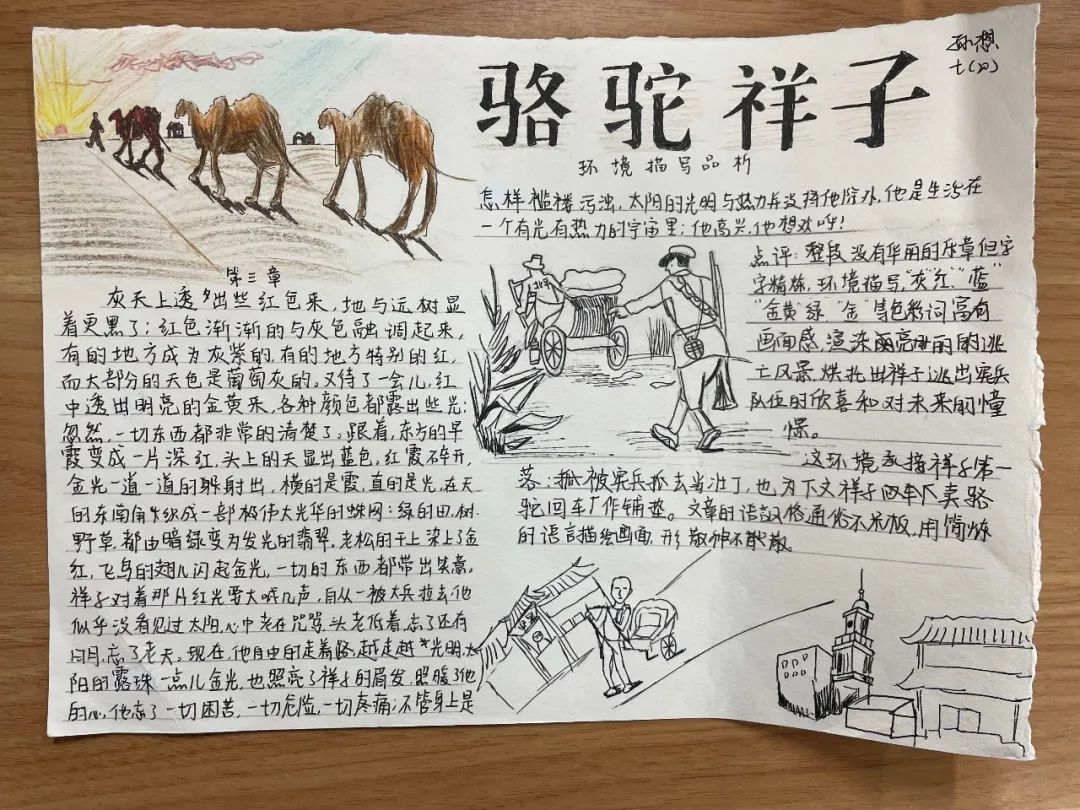 骆驼祥子
孙想
七(四)
环境描写品析
第三章
灰天上透出些红色来,地与远树显
着更黑了;红色渐渐的与灰色融调起来,
有的地方成为灰紫的,有的地方特别的红,
而大部分的天色是葡萄灰的。又待了一会儿,红
中透出明亮的金黄来,各种颜色都露出些光;
忽然,一切东西都非常的清楚了。跟着,东方的早
霞变成一片深红,头上的天显出蓝色,红霞碎开,
金光一道一道的射出,横的是霞,直的是光,在天
的东南角织成一部极伟大光华的蛛网:绿的田,树,
野草,都由暗绿变为发光的翡翠。老松的干上染上了金
红,飞鸟的翅儿闪起金光,一切的东西都带出笑意。
祥子对着那片红光要大喊几声,自从一被大兵拉去,他
似乎没看见过太阳,心中老在咒骂,头老低着,忘了还有
日月,忘了老天。现在,他自由的走着路,越走越光明,太
阳的露珠一点儿金光,也照亮了祥子的眉发,照暖了他
的心。他忘了一切困苦,一切危险,一切疼痛;不管身上是
怎样褴褛污浊,太阳的光明与热力并没将他除外,他是生活在
一个有光有热力的宇宙里;他高兴,他想欢呼!
点评:整段没有华丽的乐章但字
字精炼,环境描写,"灰""红""蓝"
"金黄""绿""金"等色彩词富有
画面感,渲染丽亮的逃
亡风景,烘托出祥子逃出宪兵
队伍的欣喜和对未来的憧
憬。
这环境承接祥子第一
落:抓被宪兵抓去当壮丁,也为下文祥子卖骆
驼回车厂作铺垫。文章的语言风格通俗不呆板,用简炼
的语言描绘画面,形散神不散。